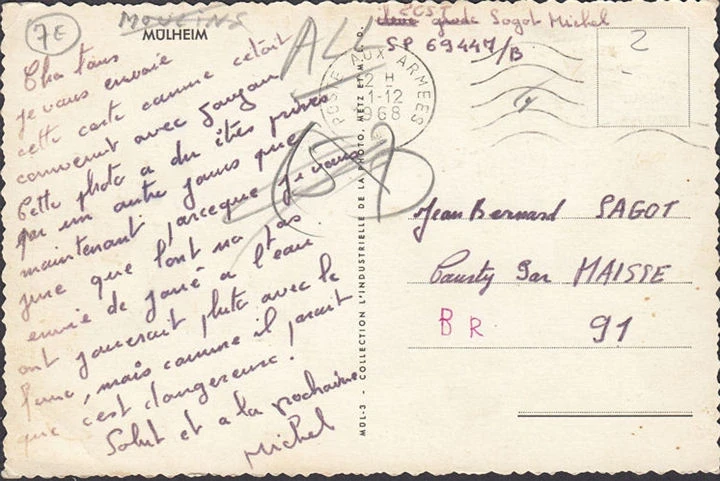 7E
MOULINS
MÜLHEIM
Cha tous
je vous envoie
cette carte comme cetait
convenit avec
Cette photo a du êtres prises
par un autre jours que
maintenant parceque je vous
jure que l'ont na pas
envie de joué a l'eau
ont jouerait pluto avec le
, mais comme il parait
que c'est dangereuse!
Salut et a la prochaine
Michel
ALL
2ème Sagot Michel
SP 69447/B
POSTE AUX ARMEES
12 H
1-12
1968
2
MÜL-3 - COLLECTION L'INDUSTRIELLE DE LA PHOTO, METZ ET M.
Jean Bernard SAGOT
Par MAISSE
BR 91